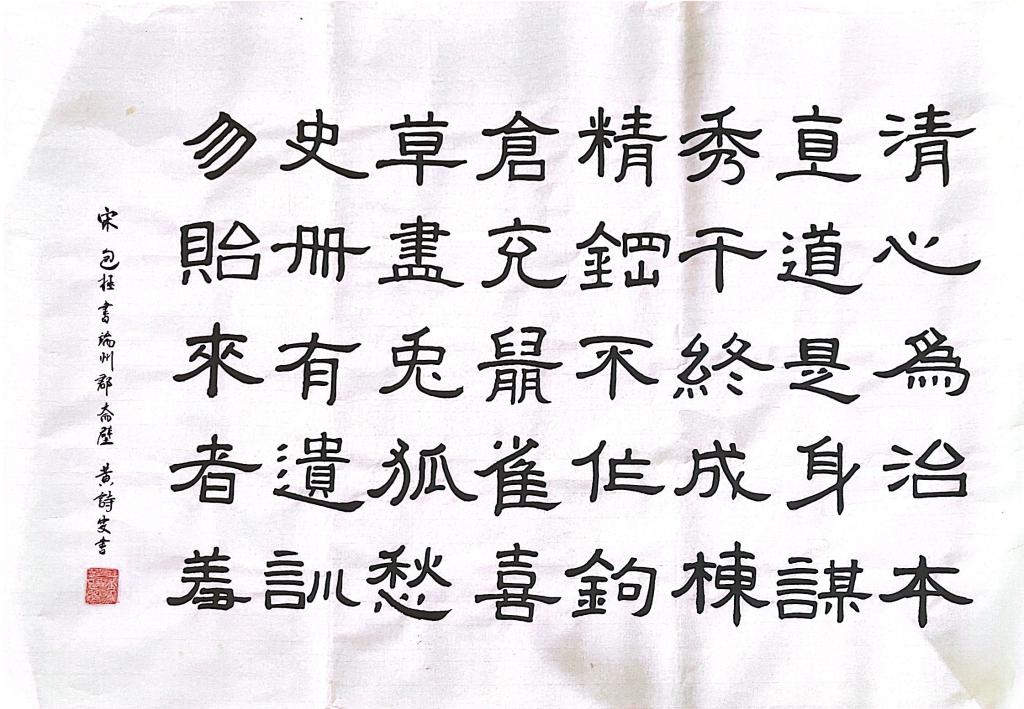 清心爲治本
直道是身謀
秀干終成棟
精鋼不作鉤
倉充鼠雀喜
草盡兔狐愁
史冊有遺訓
勿貽來者羞
宋 包拯書端州郡齋壁 黃詩安書